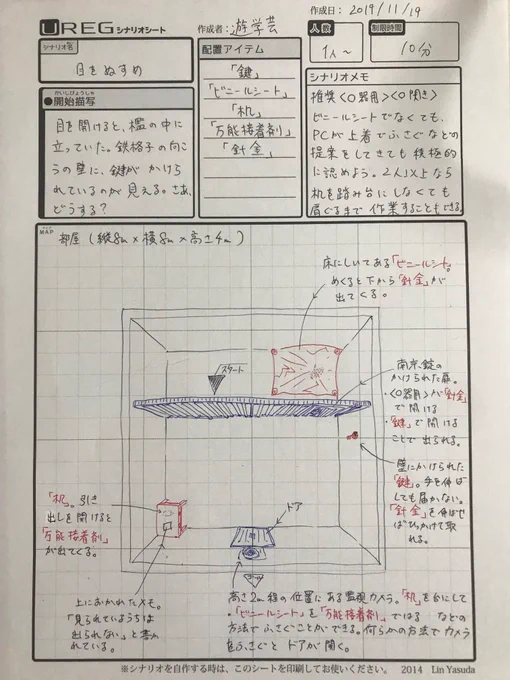 作成日：2019/11/19
UREGシナリオシート
作成者：遊学芸
人数
1人～
制限時間
10分
シナリオ名
目をぬすめ
配置アイテム
「鍵」
「ビニールシート」
「机」
「万能接着剤」
「針金」
かいしびょうしゃ
●開始描写
目を開けると、檻の中に
立っていた。鉄格子の向こ
うの壁に、鍵がかけら
れているのが見える。さあ、
どうする？
シナリオメモ
推奨〈○器用〉〈○閃き〉
ビニールシートでなくても、
PCが上着でふさぐなどの
提案をしてきても積極的
に認めよう。2人以上なら
机を踏み台にしなくても
肩ぐるまで作業することもできる。
MAP
部屋（縦8m×横8m×高さ4m）
床にしいてある「ビニールシート」。
めくると下から「針金」が
出てくる。
スタート
南京錠の
かけられた扉。
・〈○器用〉か「針金」
で開ける
・「鍵」で開ける
ことで出られる。
壁にかけられた
「鍵」。手を伸ば
しても届かない。
「針金」を伸ばせ
ばひっかけて取
れる。
「机」。引き
出しを開けると
「万能接着剤」
が出てくる。
ドア
上におかれたメモ。
「見られているうちは
出られない」と書か
れている。
高さ2m程の位置にある監視カメラ。「机」を台にして
・「ビニールシート」を「万能接着剤」ではる などの
方法でふさぐことができる。何らかの方法でカメラ
をふさぐと ドアが開く。
※シナリオを自作する時は、このシートを印刷してお使いください。 2014 Lin Yasuda